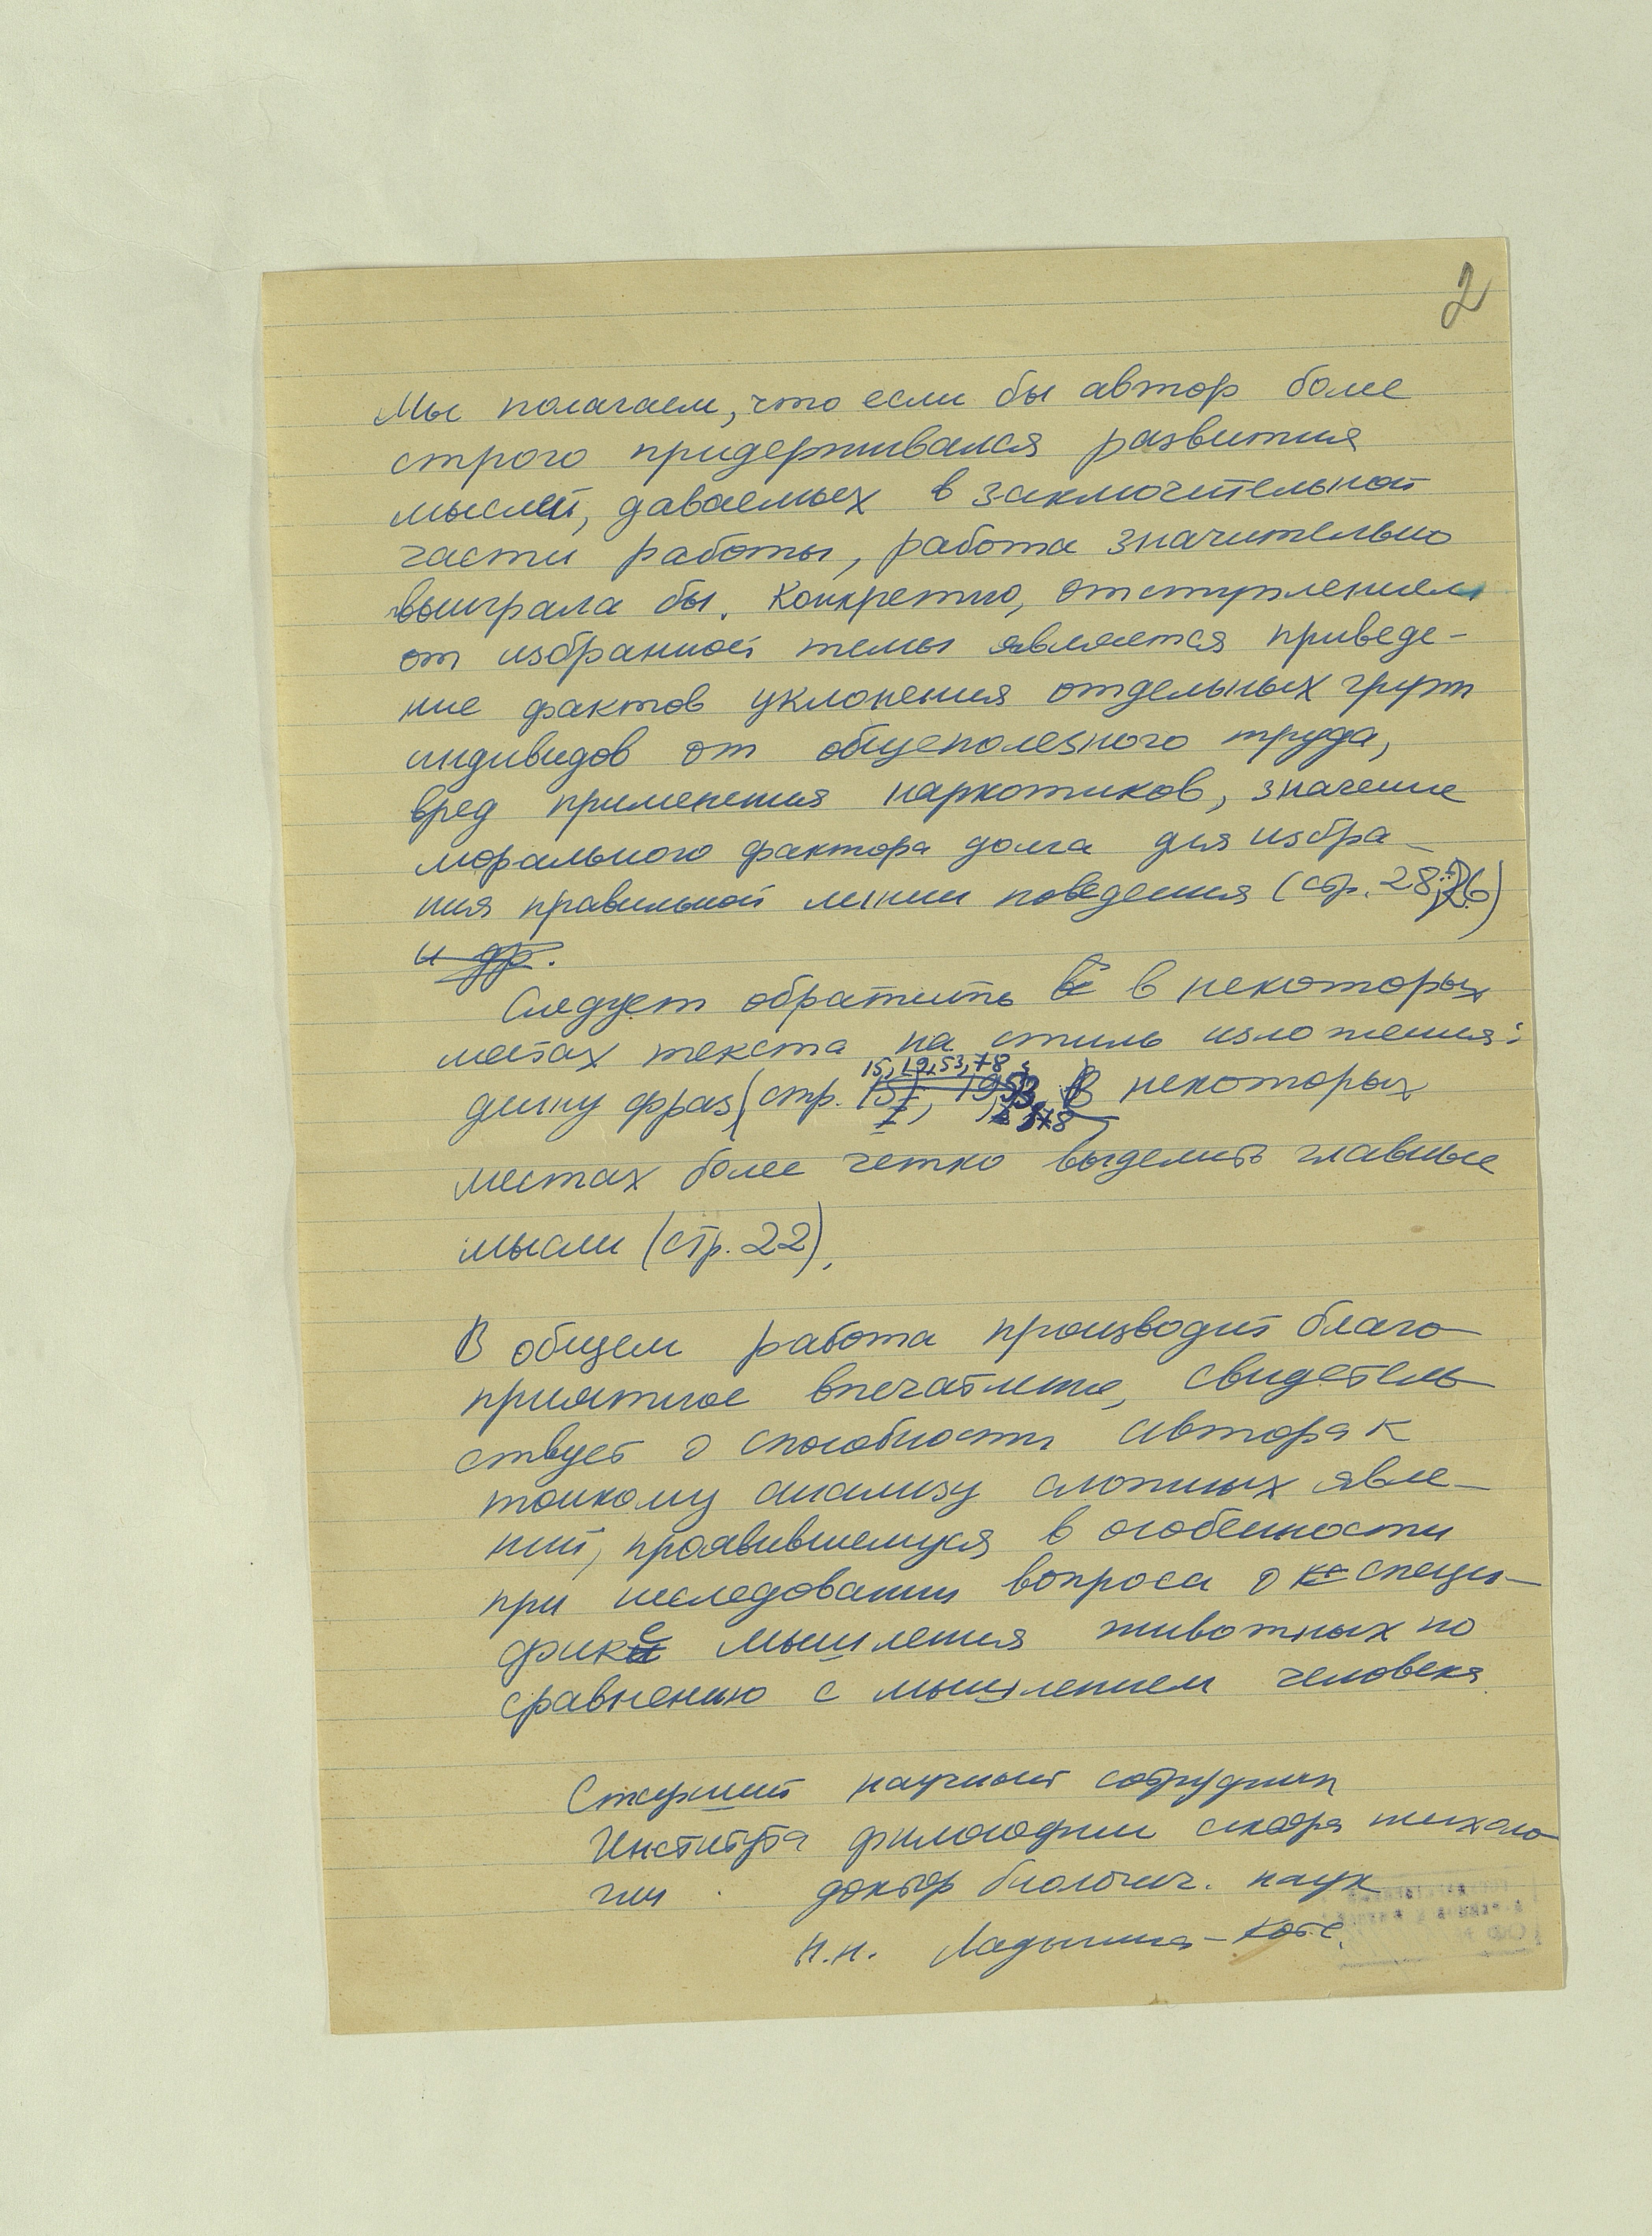 2
Мы полагаем, что если бы автор более
строго придерживался развития
мыслей, даваемых в заключительной
части работы, работа значительно
выиграла бы. Конкретно, отступлением
от избранной темы является приведе-
ние фактов уклонения отдельных групп
индивидов от общеполезного труда,
вред применения наркотиков, значение
морального фактора долга для избра-
ния правильной линии поведения (стр. 28, 26)
и др.
Следует обратить в некоторых
местах текста на стиль изложения:
15, 19, 53, 78
длину фраз (стр. 15, 19, 53, 78 В некоторых
местах более четко выделить главные
мысли (стр. 22).
В общем работа производит благо-
приятное впечатление, свидетель-
ствует о способности автора к
тонкому анализу сложных явле-
ний, проявившемуся в особенности
при исследовании вопроса о специ-
фике мышления животных по
сравнению с мышлением человека
Старший научный сотрудник
Института философии сектора психоло-
гии доктор биологич. наук
Н.Н. Ладыгина-Котс.